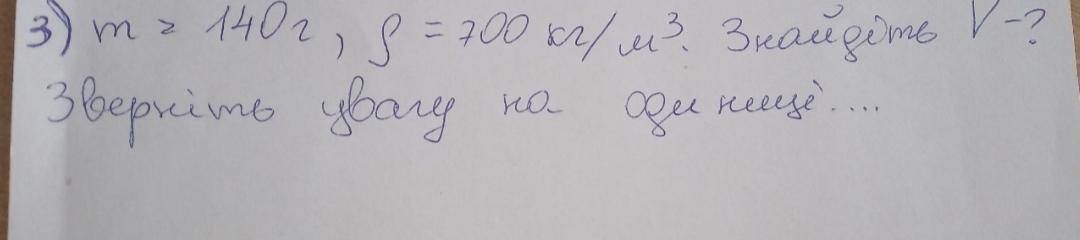 3) m = 140г, ρ = 700 кг/м³. Знайдіть V-?
Зверніть увагу на одиниці....